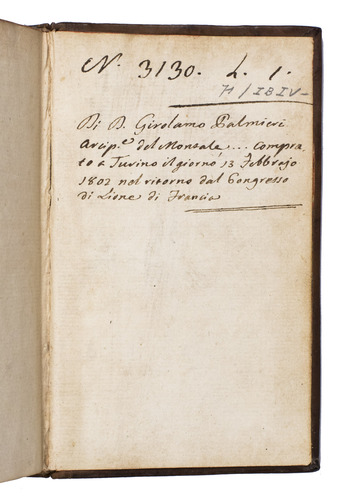 N. 3130. L. 1.
H / I8 IV-
Di D. Girolamo Palmieri
Arcip.e del Montale ... compra
to a Turino il giorno 13 Febbrajo
1802 nel ritorno dal Congresso
di Lione di Francia